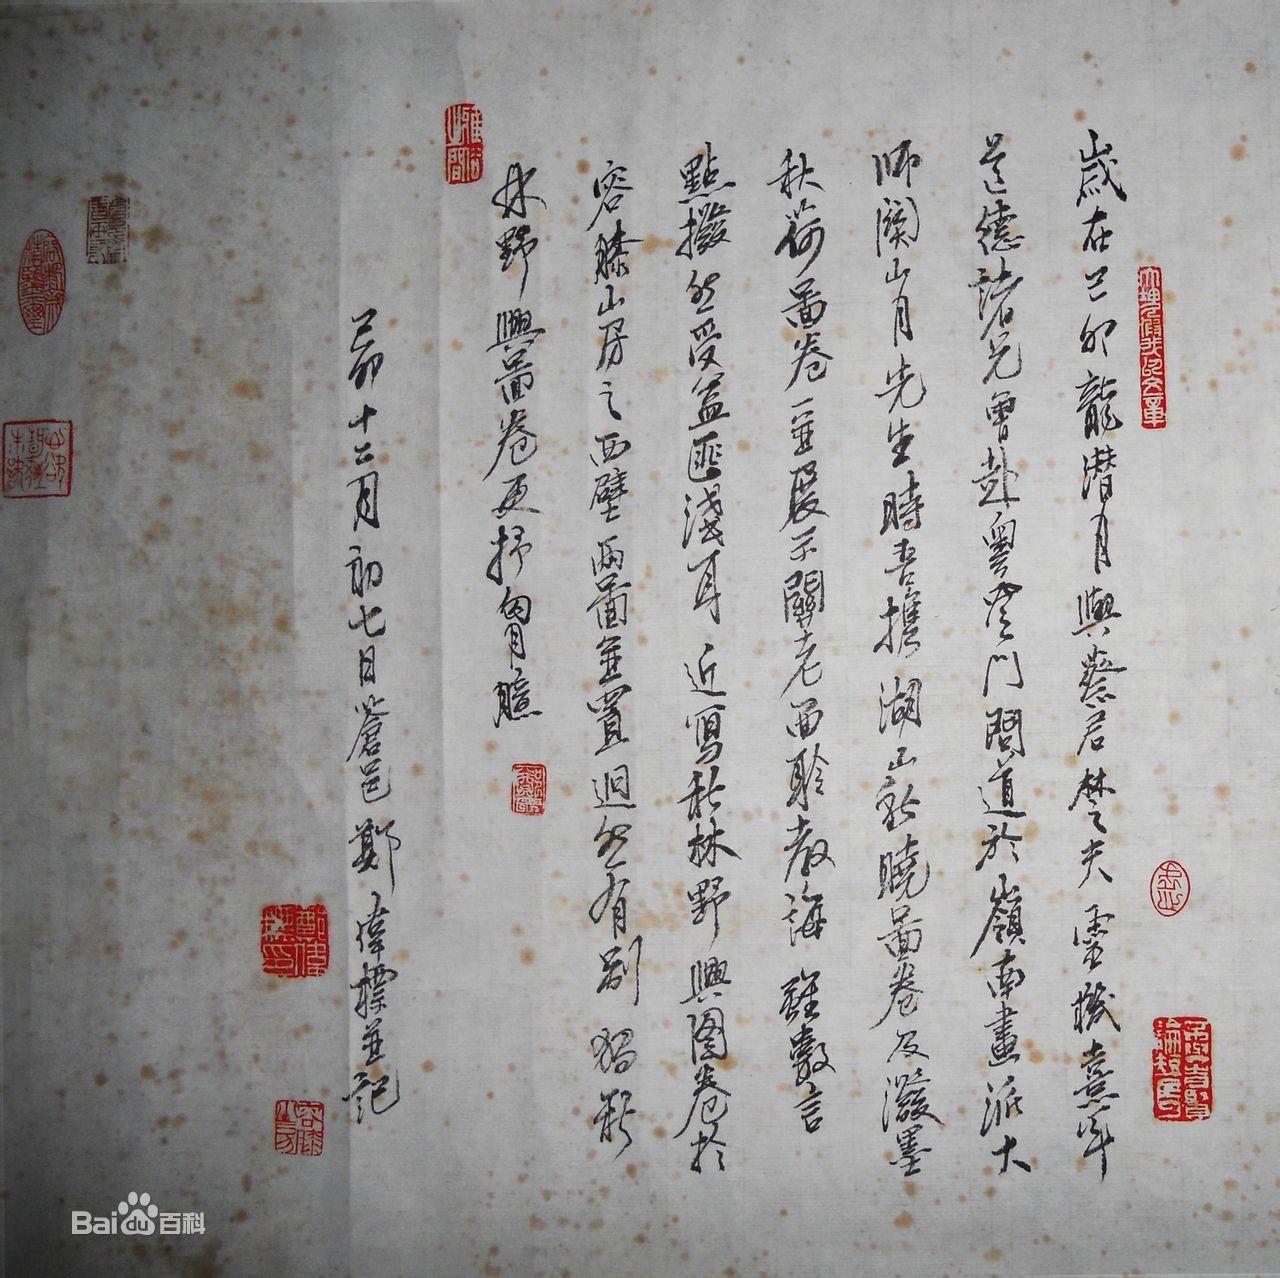 歲在己卯龍潛月與蔡君楚夫靈機熹年
道德諸兄曾赴粵登門問道於嶺南畫派大
師關山月先生時吾攜湖山秋曉啚卷及潑墨
秋荷啚卷一並展示關老面聆教誨雖數言
點撥然受益匪淺耳近寫秋林野興图卷於
容膝山房之西壁兩啚並置迥然有别猶秋
林野興啚卷更抒胸臆
己卯十二月初七日蒼邑鄭偉標並記
Baidu百科